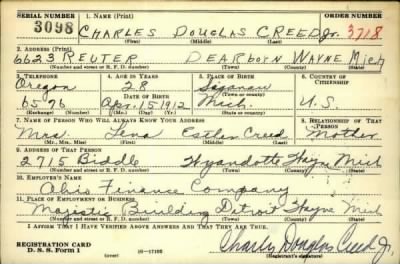 SERIAL NUMBER 1. NAME (Print) ORDER NUMBER
3098 CHARLES DOUGLAS CREED Jr. 3718
(First) (Middle) (Last)
2. ADDRESS (Print)
6623 REUTER DEARBORN WAYNE Mich
(Number and street or R. F. D. number) (Town) (County) (State)
3. TELEPHONE 4. AGE IN YEARS 5. PLACE OF BIRTH 6. COUNTRY OF CITIZENSHIP
Oregon 28 Saginaw
DATE OF BIRTH (Town or county)
6576 Apr. 15 1912 Mich. U.S.
(Exchange) (Number) (Mo.) (Day) (Yr.) (State or country)
7. NAME OF PERSON WHO WILL ALWAYS KNOW YOUR ADDRESS 8. RELATIONSHIP OF THAT PERSON
Mrs. Lena Esther Creed Mother
(Mr., Mrs., Miss) (First) (Middle) (Last)
9. ADDRESS OF THAT PERSON
2715 Biddle Wyandotte Wayne Mich
(Number and street or R. F. D. number) (Town) (County) (State)
10. EMPLOYER'S NAME
Ohio Finance Company
11. PLACE OF EMPLOYMENT OR BUSINESS
Majestic Building Detroit Wayne Mich
(Number and street or R. F. D. number) (Town) (County) (State)
I AFFIRM THAT I HAVE VERIFIED ABOVE ANSWERS AND THAT THEY ARE TRUE.
REGISTRATION CARD
D. S. S. Form 1 16—17105 Charles Douglas Creed Jr.
(over) (Registrant's signature)